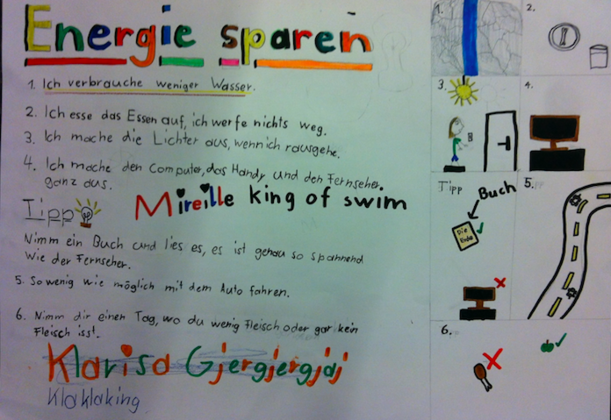 Energie sparen
1. Ich verbrauche weniger Wasser.
2. Ich esse das Essen auf, ich werfe nichts weg.
3. Ich mache die Lichter aus, wenn ich rausgehe.
4. Ich mache den Computer, das Handy und den Fernseher
ganz aus.
Mireille king of swim
Tipp
Nimm ein Buch und lies es, es ist genau so spannend
wie der Fernseher.
5. So wenig wie möglich mit dem Auto fahren.
6. Nimm dir einen Tag, wo du wenig Fleisch oder gar kein
Fleisch isst.
Klarisa Gjergjergjaj
Klaklaking
1.
2.
3.
4.
Tipp
Buch
5.
6.